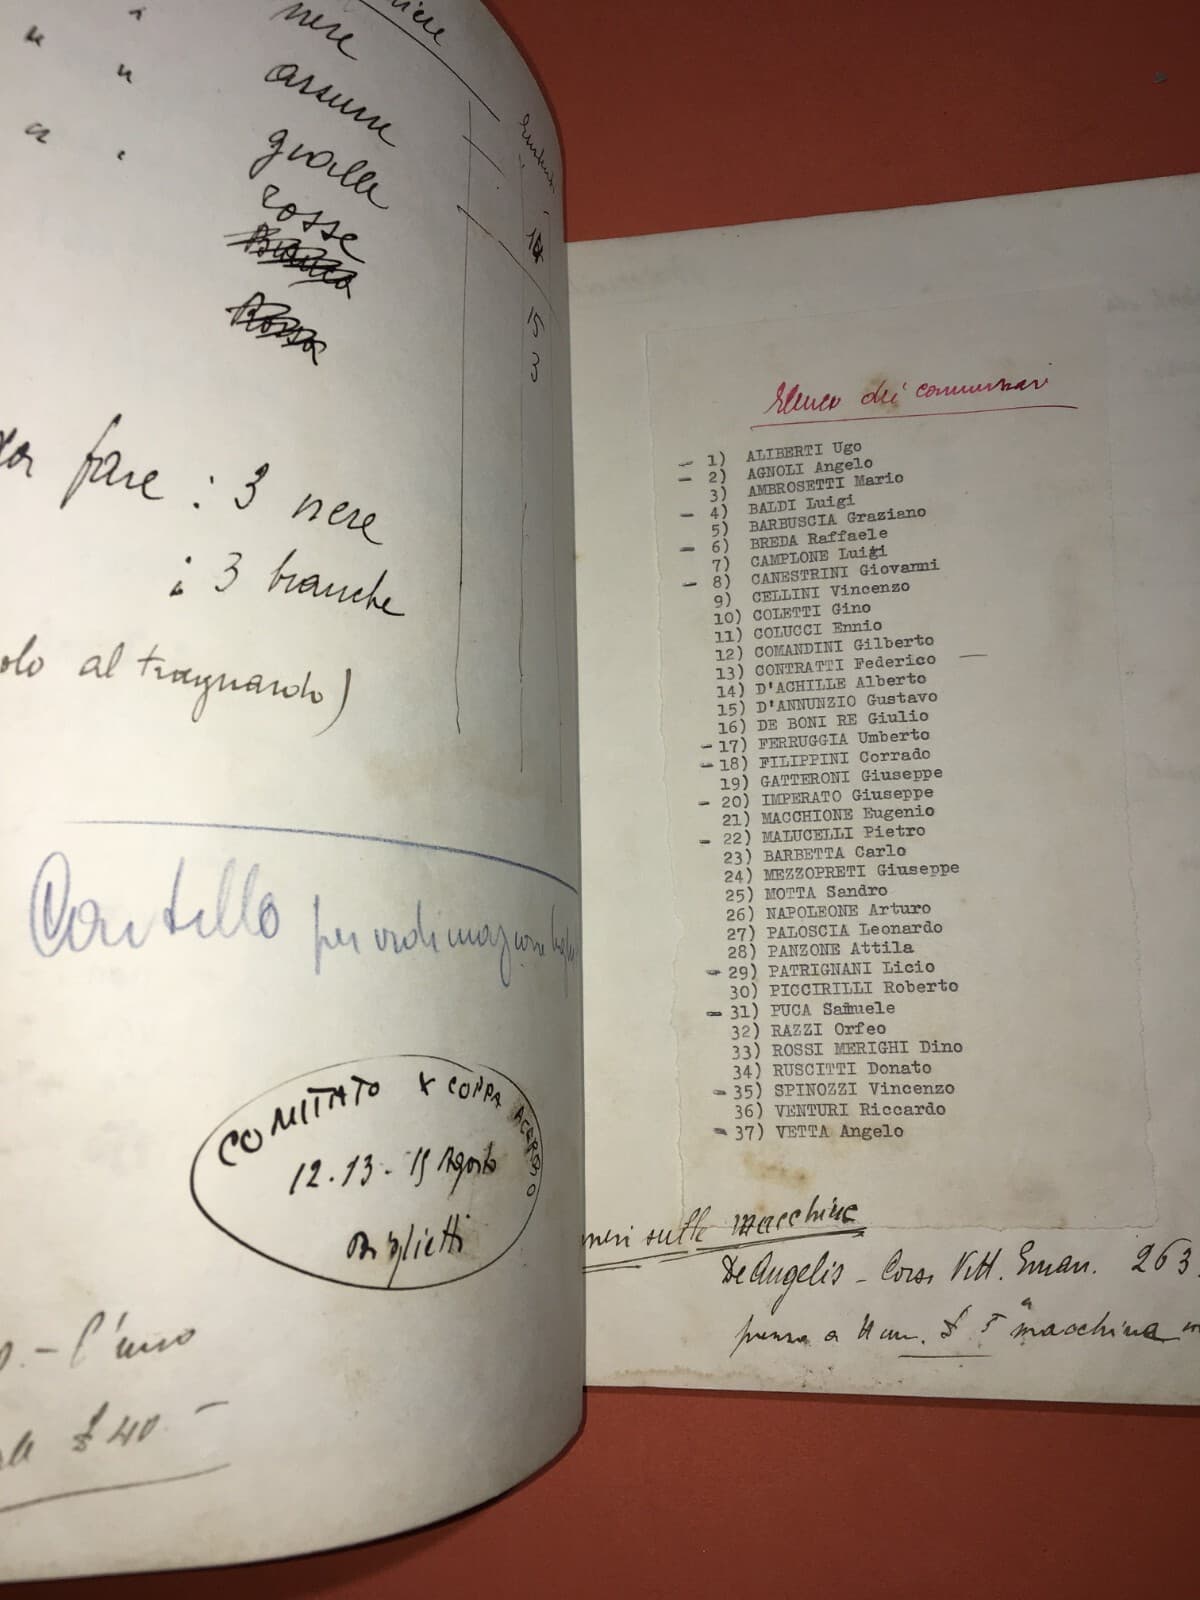 nere
assurre
gialle
rosse
15
3
fare : 3 nere
: 3 bianche
al traguardo)
Cartello per vidimazione
COMITATO X COPPA ACERBO
12.13 - 15 Agosto
Biglietti
- l'uno
£ 40 -
Elenco dei commissari
- 1) ALIBERTI Ugo
- 2) AGNOLI Angelo
3) AMBROSETTI Mario
- 4) BALDI Luigi
5) BARBUSCIA Graziano
- 6) BREDA Raffaele
7) CAMPLONE Luigi
- 8) CANESTRINI Giovanni
9) CELLINI Vincenzo
10) COLETTI Gino
11) COLUCCI Ennio
12) COMANDINI Gilberto
13) CONTRATTI Federico —
14) D'ACHILLE Alberto
15) D'ANNUNZIO Gustavo
16) DE BONI RE Giulio
- 17) FERRUGGIA Umberto
- 18) FILIPPINI Corrado
19) GATTERONI Giuseppe
- 20) IMPERATO Giuseppe
21) MACCHIONE Eugenio
- 22) MALUCELLI Pietro
23) BARBETTA Carlo
24) MEZZOPRETI Giuseppe
25) MOTTA Sandro
26) NAPOLEONE Arturo
27) PALOSCIA Leonardo
28) PANZONE Attila
- 29) PATRIGNANI Licio
30) PICCIRILLI Roberto
- 31) PUCA Samuele
32) RAZZI Orfeo
33) ROSSI MERIGHI Dino
34) RUSCITTI Donato
- 35) SPINOZZI Vincenzo
36) VENTURI Riccardo
- 37) VETTA Angelo
sulle macchine
De Angelis - Corso Vitt. Eman. 263
macchina